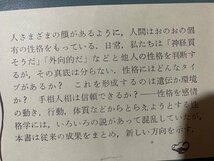 人さまざまの顔があるように、人間はおのおの個
有の性格をもっている。日常、私たちは「神経質
そうだ」「外向的だ」などと他人の性格を判断す
るが、その真底は分らない。性格にはどんなタイ
プがあるか？　これを形成するのは遺伝か環境
か？　手相人相は信頼できるか？――性格を感情
の動き、行動、体質などからとらえようとする性
格学には、いろいろの説があって混乱していたが、
本書は従来の成果をまとめ、新しい方向を示す。